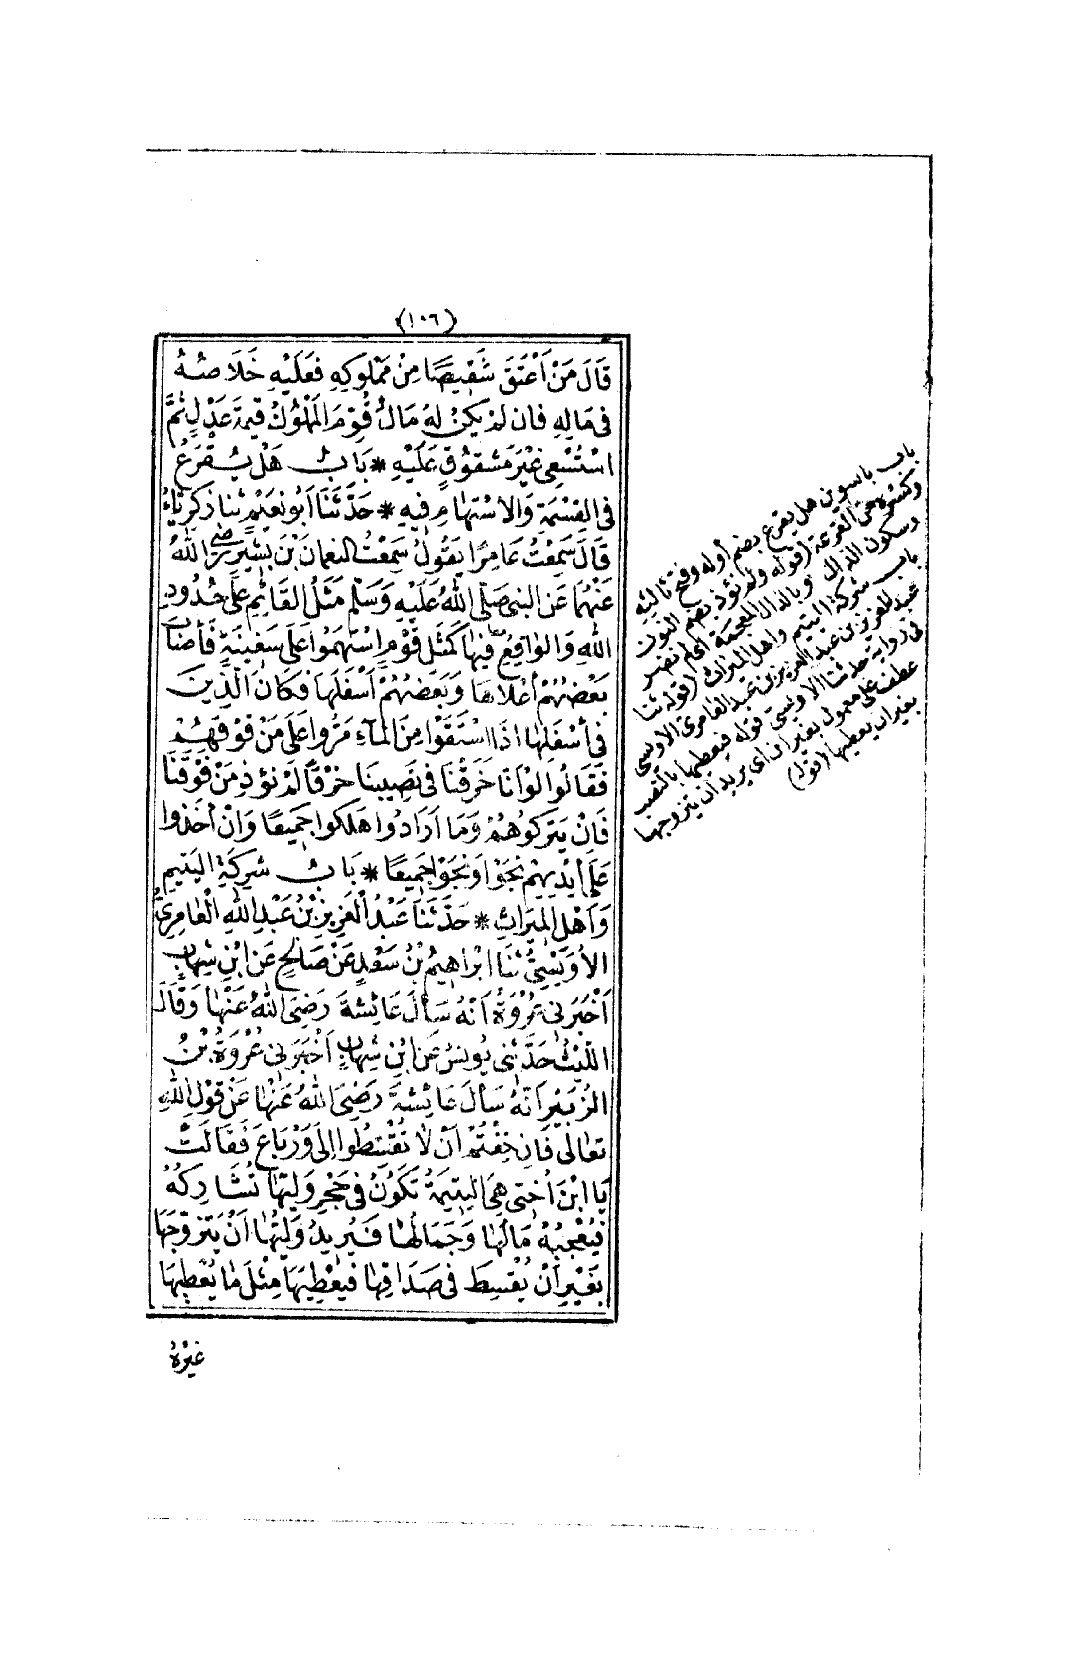 (١٠٦)
قَالَ مَنْ اَعْتَقَ شَقِيصًا مِنْ مَمْلُوكِهِ فَعَلَيْهِ خَلَاصُهُ
فِى مَالِهِ فَاِنْ لَمْ يَكُنْ لَهُ مَالٌ قُوِّمَ الْمَمْلُوكُ قِيمَةَ عَدْلٍ ثُمَّ
اسْتُسْعِىَ غَيْرَ مَشْقُوقٍ عَلَيْهِ * بَابٌ هَلْ يُقْرَعُ
فِى الْقِسْمَةِ وَالِاسْتِهَامِ فِيهِ * حَدَّثَنَا اَبُو نُعَيْمٍ ثنا زَكَرِيَّاءُ
قَالَ سَمِعْتُ عَامِرًا يَقُولُ سَمِعْتُ النُّعْمَانَ بْنَ بَشِيرٍ رَضِىَ اللّٰهُ
عَنْهُمَا عَنِ النَّبِىِّ صَلَّى اللّٰهُ عَلَيْهِ وَسَلَّمَ مَثَلُ الْقَائِمِ عَلَى حُدُودِ
اللّٰهِ وَالْوَاقِعِ فِيهَا كَمَثَلِ قَوْمٍ اسْتَهَمُوا عَلَى سَفِينَةٍ فَأَصَابَ
بَعْضُهُمْ أَعْلَاهَا وَبَعْضُهُمْ اَسْفَلَهَا فَكَانَ الَّذِينَ
فِى أَسْفَلِهَا اِذَا اسْتَقَوْا مِنَ الْمَآءِ مَرُّوا عَلَى مَنْ فَوْقَهُمْ
فَقَالُوا لَوْ اَنَّا خَرَقْنَا فِى نَصِيبِنَا خَرْقًا وَلَمْ نُؤْذِ مَنْ فَوْقَنَا
فَاِنْ يَتْرُكُوهُمْ وَمَا اَرَادُوا هَلَكُوا جَمِيعًا وَاِنْ أَخَذُوا
عَلَى أَيْدِيهِمْ نَجَوْا وَنَجَوْا جَمِيعًا * بَابُ شَرِكَةِ الْيَتِيمِ
وَاَهْلِ الْمِيرَاثِ * حَدَّثَنَا عَبْدُ الْعَزِيزِ بْنُ عَبْدِ اللّٰهِ الْعَامِرِىُّ
الْأُوَيْسِىُّ ثَنَا اِبْرَاهِيمُ بْنُ سَعْدٍ عَنْ صَالِحٍ عَنِ ابْنِ شِهَابٍ
اَخْبَرَنِى عُرْوَةُ اَنَّهُ سَأَلَ عَائِشَةَ رَضِىَ اللّٰهُ عَنْهَا وَقَالَ
اللَّيْثُ حَدَّثَنِى يُونُسُ عَنِ ابْنِ شِهَابٍ اَخْبَرَنِى عُرْوَةُ بْنُ
الزُّبَيْرِ اَنَّهُ سَأَلَ عَائِشَةَ رَضِىَ اللّٰهُ عَنْهَا عَنْ قَوْلِ اللّٰهِ
تَعَالَى فَاِنْ خِفْتُمْ اَنْ لَا تُقْسِطُوا اِلَى وَرُبَاعَ فَقَالَتْ
يَا ابْنَ اُخْتِى هِىَ الْيَتِيمَةُ تَكُونُ فِى حَجْرِ وَلِيِّهَا تُشَارِكُهُ
فَيُعْجِبُهُ مَالُهَا وَجَمَالُهَا فَيُرِيدُ وَلِيُّهَا اَنْ يَتَزَوَّجَهَا
بِغَيْرِ اَنْ يُقْسِطَ فِى صَدَاقِهَا فَيُعْطِيَهَا مِثْلَ مَا يُعْطِيهَا
غَيْرُهُ
باب بالتنوين هل يقرع بضم أوله وفتح ثالثه
وكسره من القرعة (قوله ولم نؤذ بضم النون
وسكون الذال وبالذال المعجمة
باب شركة اليتيم واهل الميراث (قوله ثنا
عبد العزيز بن عبد العزيز بن عبد الله العامرى الاويسى
فى رواية حدثنا الاويسى قوله فيعطيها بالنصب
عطف على معمول بغير ان اى يريد أن يتزوجها
بغير ان يعطيها (قوله)